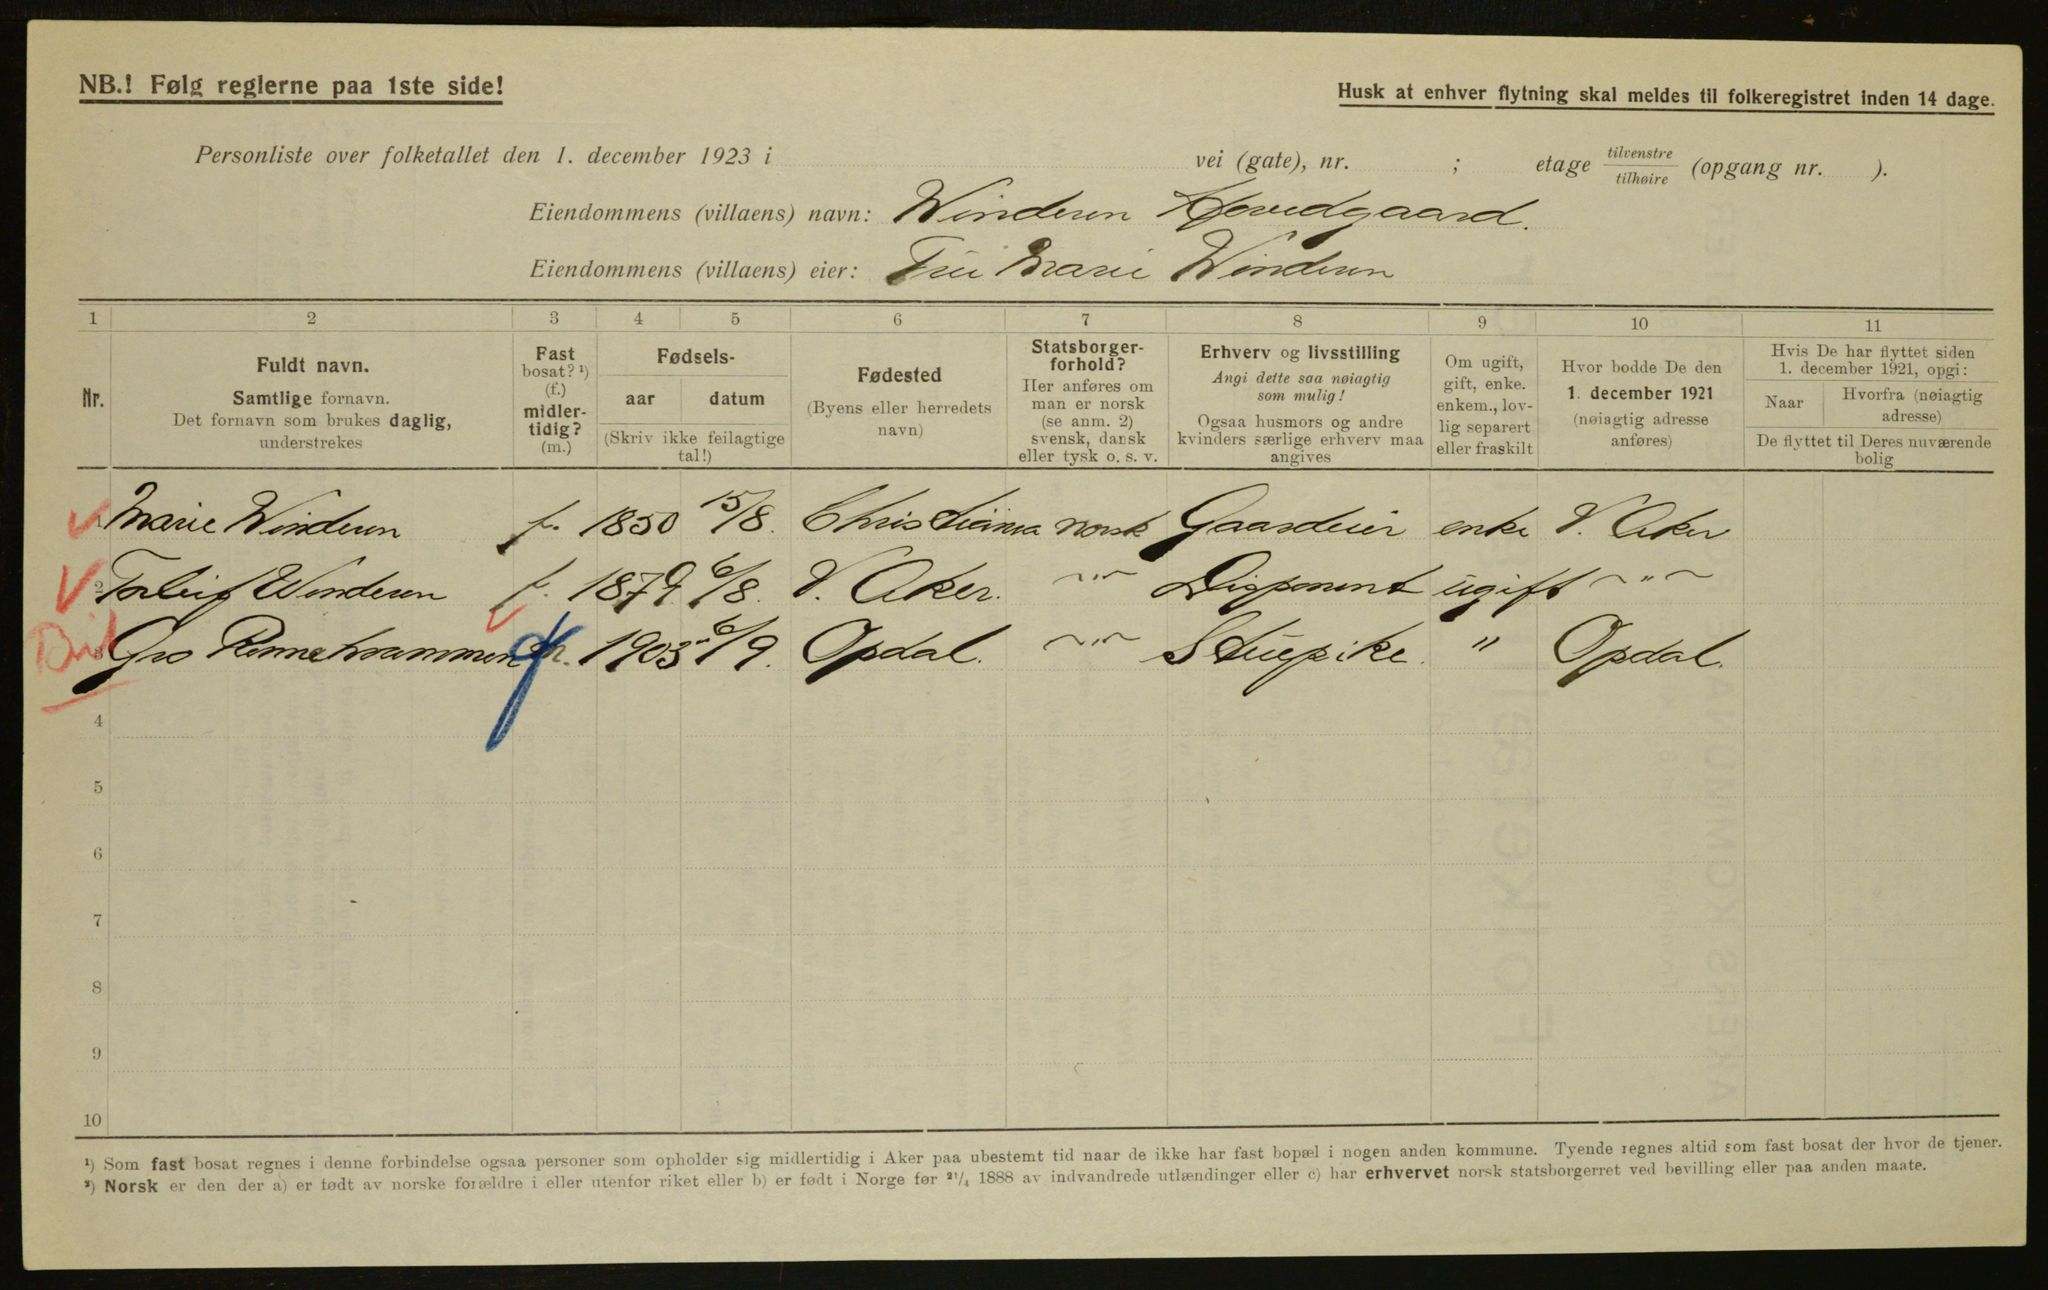 NB.! Følg reglerne paa 1ste side!
Husk at enhver flytning skal meldes til folkeregistret inden 14 dage.
Personliste over folketallet den 1. december 1923 i vei (gate), nr. ; etage tilvenstre/tilhøire (opgang nr. ).
Eiendommens (villaens) navn: Winderen Hovedgaard.
Eiendommens (villaens) eier: Fru Marie Winderen
1 2 3 4 5 6 7 8 9 10 11
Nr.
Fuldt navn.
Samtlige fornavn.
Det fornavn som brukes daglig,
understrekes
Fast
bosat? ¹)
(f.)
midler-
tidig?
(m.)
Fødsels-
aar datum
(Skriv ikke feilagtige
tal!)
Fødested
(Byens eller herredets
navn)
Statsborger-
forhold?
Her anføres om
man er norsk
(se anm. 2)
svensk, dansk
eller tysk o. s. v.
Erhverv og livsstilling
Angi dette saa nøiagtig
som mulig!
Ogsaa husmors og andre
kvinders særlige erhverv maa
angives
Om ugift,
gift, enke.
enkem., lov-
lig separert
eller fraskilt
Hvor bodde De den
1. december 1921
(nøiagtig adresse
anføres)
Hvis De har flyttet siden
1. december 1921, opgi:
Naar
Hvorfra (nøiagtig
adresse)
De flyttet til Deres nuværende
bolig
1 Marie Winderen f. 1850 15/8. Christiania norsk Gaardeier enke V. Aker
2 Torleif Winderen f. 1879 6/8. V. Aker. ~"~ Disponent ugift ~"~
3 Gro 1903 6/9. Opdal. ~"~ Stuepike. " Opdal.
4
5
6
7
8
9
10
¹) Som fast bosat regnes i denne forbindelse ogsaa personer som opholder sig midlertidig i Aker paa ubestemt tid naar de ikke har fast bopæl i nogen anden kommune. Tyende regnes altid som fast bosat der hvor de tjener.
²) Norsk er den der a) er født av norske forældre i eller utenfor riket eller b) er født i Norge før ²¹/₄ 1888 av indvandrede utlændinger eller c) har erhvervet norsk statsborgerret ved bevilling eller paa anden maate.